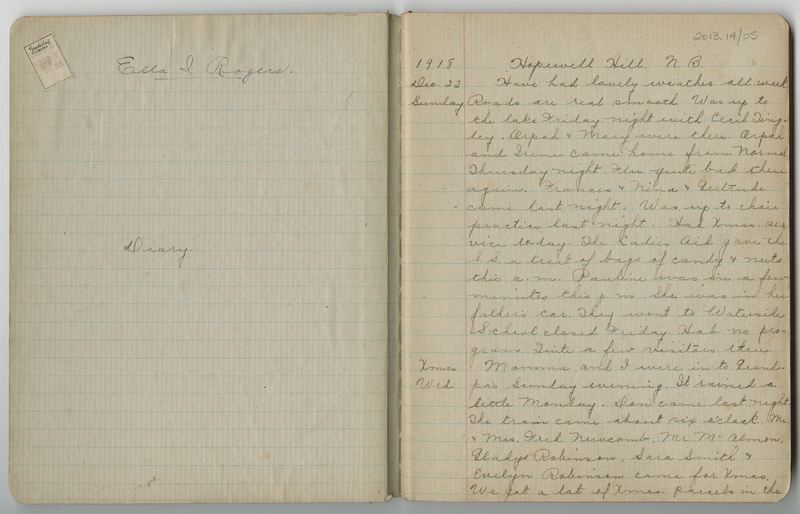 Ella I. Rogers.
Diary.
2013.14/05
1918 Hopewell Hill, N B.
Dec. 22 Have had lovely weather all week
Sunday Roads are real smooth. Was up to
the lake Friday night with Cecil Ting-
ley. Orpah & Mary were there. Orpah
and Irene came home from Normal
Thursday night. Flu quite bad there
again. Frances & Nina & Gertrude
came last night. Was up to choir
practice last night. Had Xmas. ser
vice today. The Ladies Aid gave the
S.S. a treat of bags of candy & nuts
this a.m. Pauline was in a few
minutes this p m She was in her
father's car. They went to Waterside
School closed Friday Had no pro-
gram Quite a few visitors there.
Xmas. Mamma and I were in to Grand-
Wed. pa's Sunday evening. It rained a
little Monday. Don came last night.
The train came about six o'clock. Mr.
& Mrs. Fred Newcomb, Mr. Mc Almon,
Gladys Robinson, Sara Smith &
Evelyn Robinson came for Xmas.
We got a lot of Xmas. parcels in the